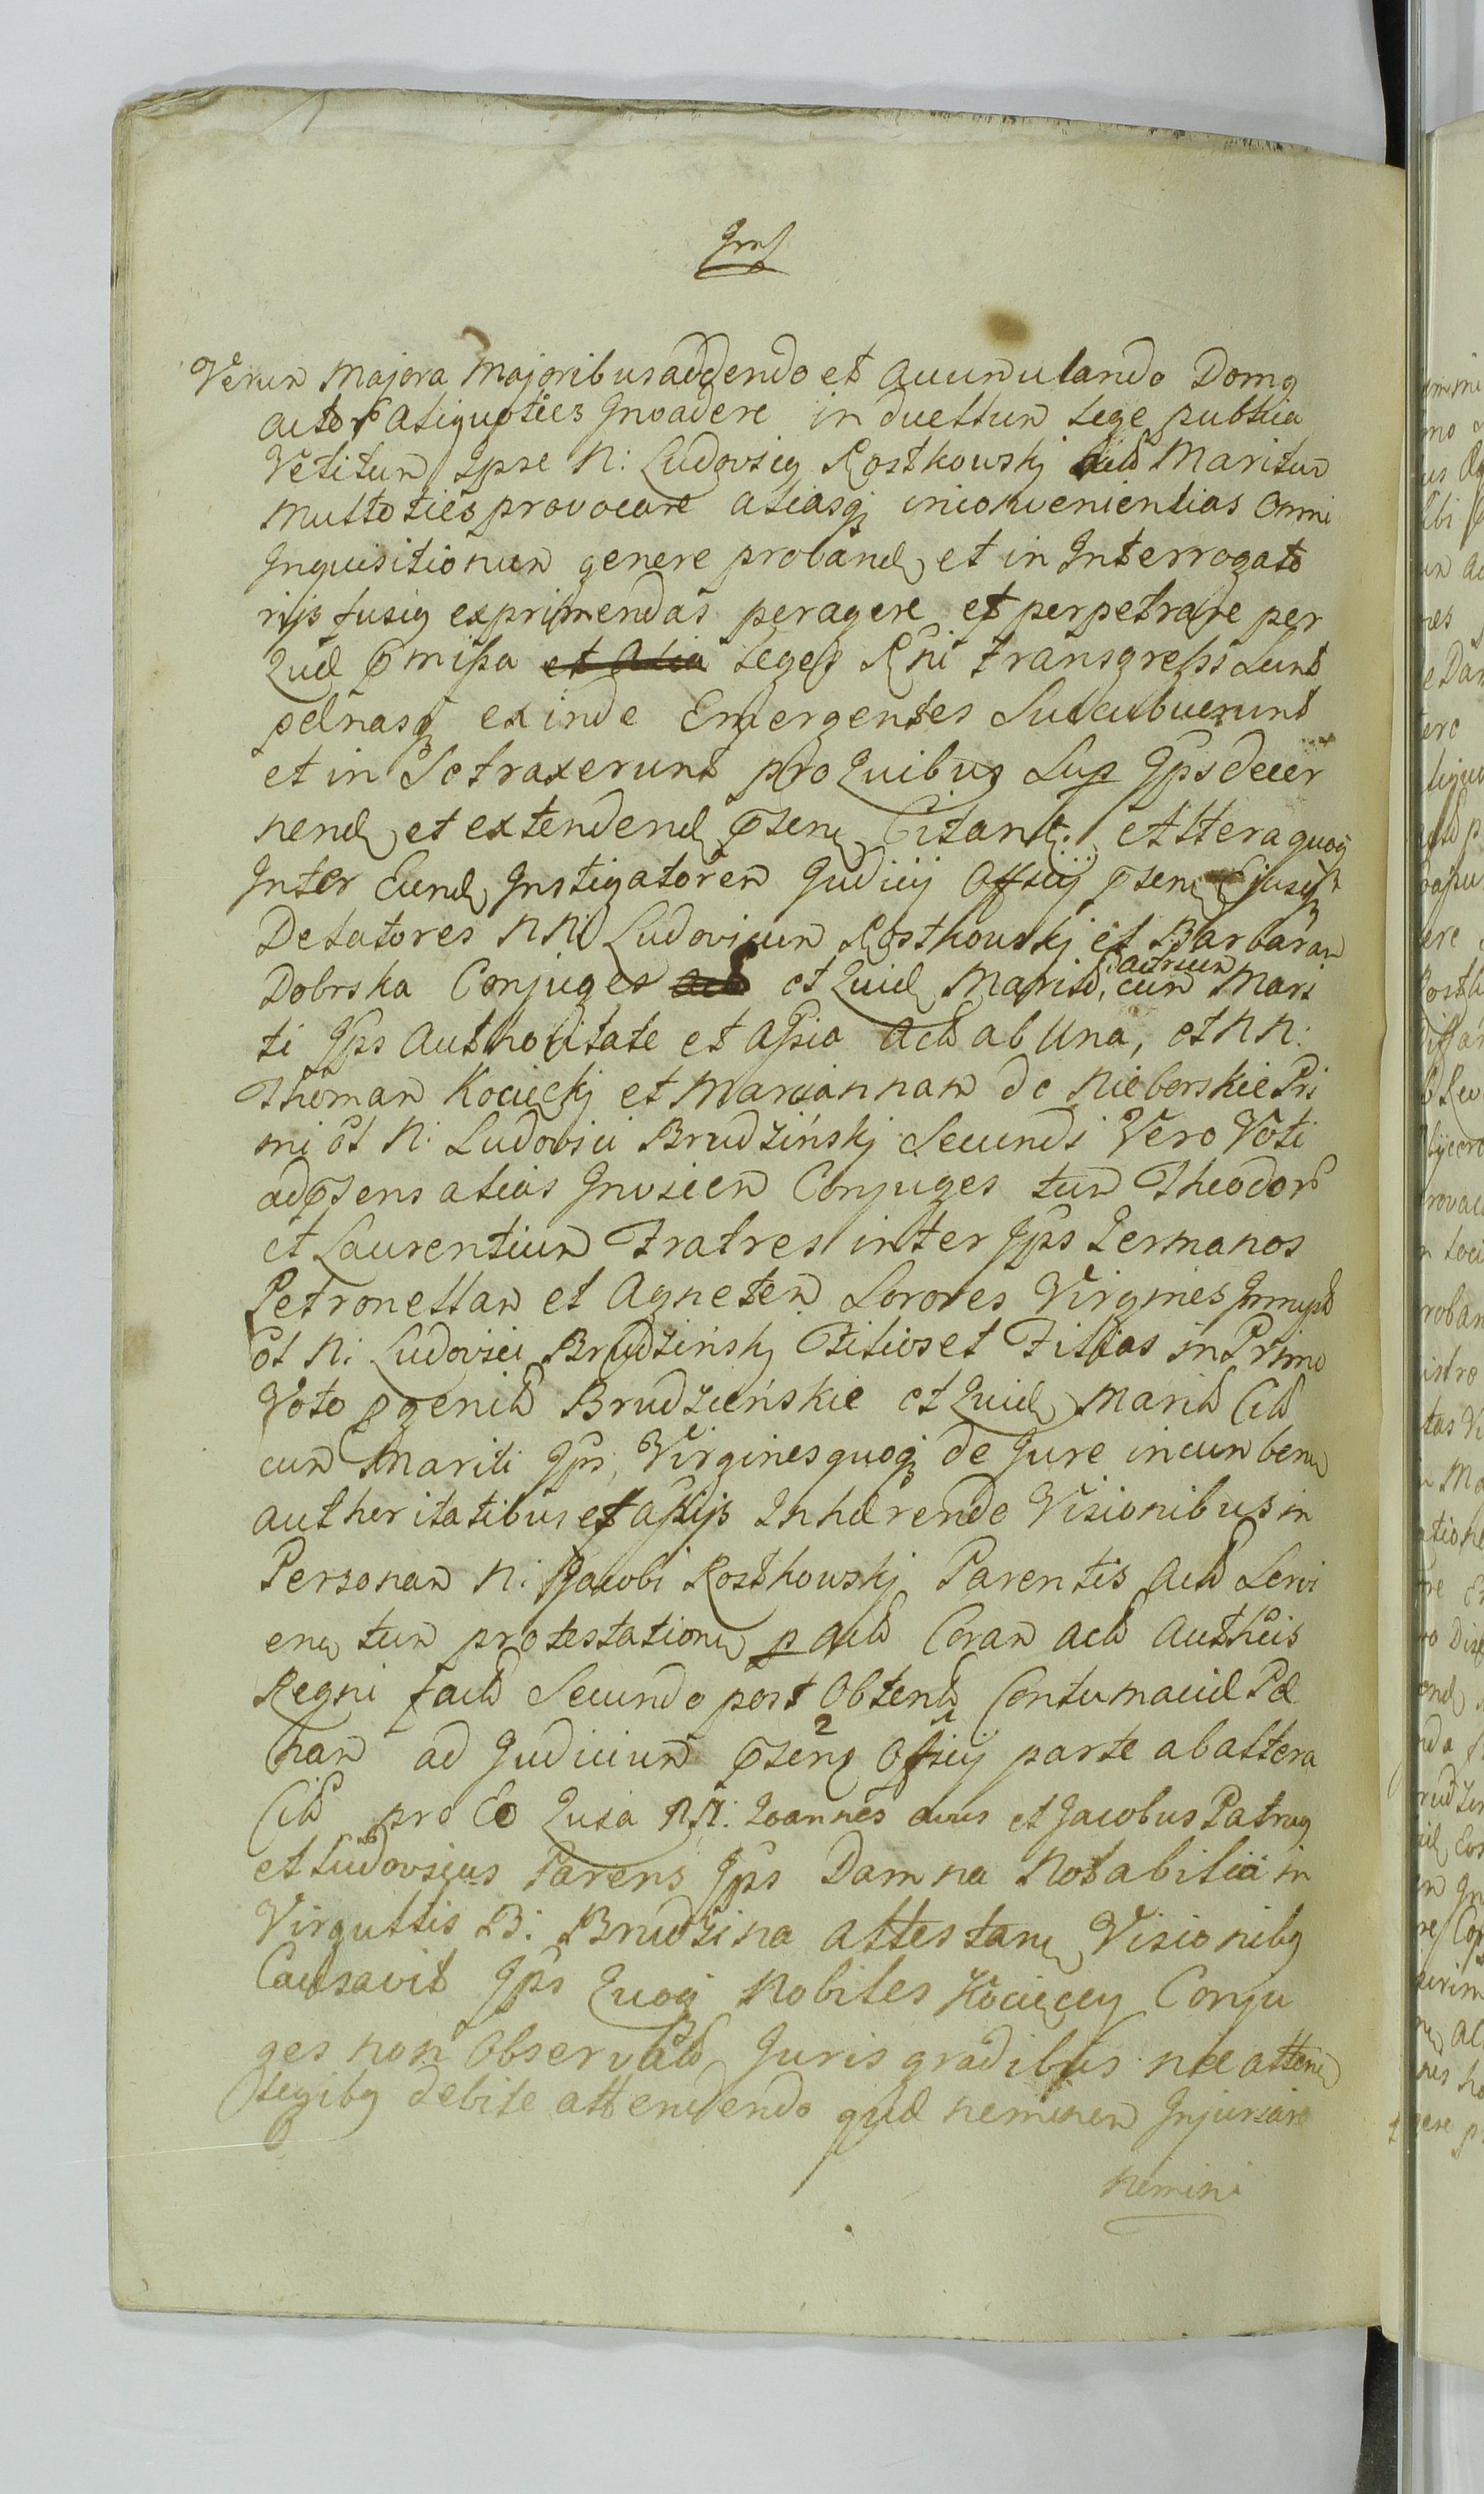 Verum Majora Majoribus addendo et accumulando Domq
actor aliquoties Invadere in duellum lege publica
Vetitum Ipse N: Ludovicq Rostkowskj act Maritum
multoties provocare aliasq inconvenientias omni
Inquisitionum genere proband et in Interrogato
rijs fusiq exprimendas peragere et perpetrare per
Quæ missa et alia leges Rni transgressi sunt
pænasq exinde Emergentes Succubuerunt
et in Se traxerunt pro quibus Sup Ips decer
nend et extendend Citant. Altera quoq
Inter Eund Instigatorem Judicij Officij Ejusq
Delatores NN Ludovicum Rostkowskj et Barbaram
Dobrska Conjuges act et Quid Marit, actricem cum Mari
ti Ips Authoritate et assia act ab Una, et NN:
Thomam Kocięckj et Mariannam de Nieborskie Pri
mi ol N: Ludovici Brudzińskj Secundi Vero Voti
ad alias Invicem Conjuges tum Theodor
et Laurentium Fratres inter Ips Germanos
Petronellam et Agnetem Sorores Virgines
ol N: Ludovici Brudzińskj Filios et Filias in Primo
Voto pgenit Brudzieńskie et Quid Marit Cit
cum Mariti Ips, Virgines quoq de Jure incumben
authoritatibus et assijs Inhærendo Visionibus in
Personam N: Jacobi Rostkowskj Parentis act Servi
en tum protestation p act Coram act Autheis
Regni fact Secundo post Obtent Contumaciæ Pæ
nam ad Judicium Officij parte ab altera
Cit pro Eo Quia NN: Ioannes avus et Jacobus Patruq
et Ludovicus Parens Ips Damna Notabilia in
Virgultis B: Brudzina attestan Visionibq
Causavit Ips Quoq Nobiles Kocięccy Conju
ges non Observat Juris gradibus nec atten
legibq debite attendendo quæ neminem Injuriare
nemini